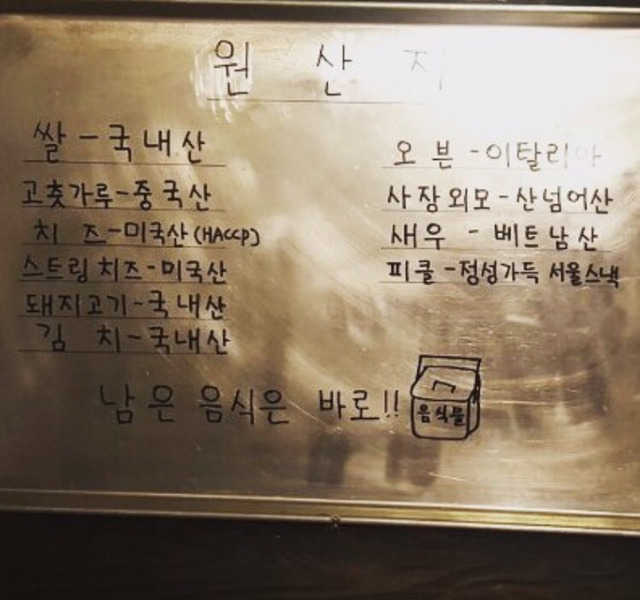 원 산 지
쌀 - 국내산
고춧가루 - 중국산
치 즈 - 미국산 (HACCP)
스트링치즈 - 미국산
돼지고기 - 국내산
김 치 - 국내산
오 븐 - 이탈리아
사장외모 - 산넘어산
새우 - 베트남산
피클 - 정성가득 서울스낵
남은 음식은 바로!!
음식물